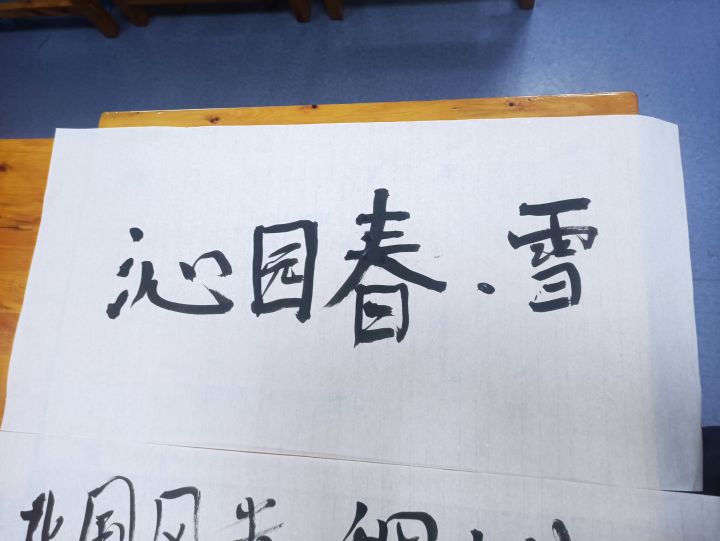 沁园春·雪
北国风光